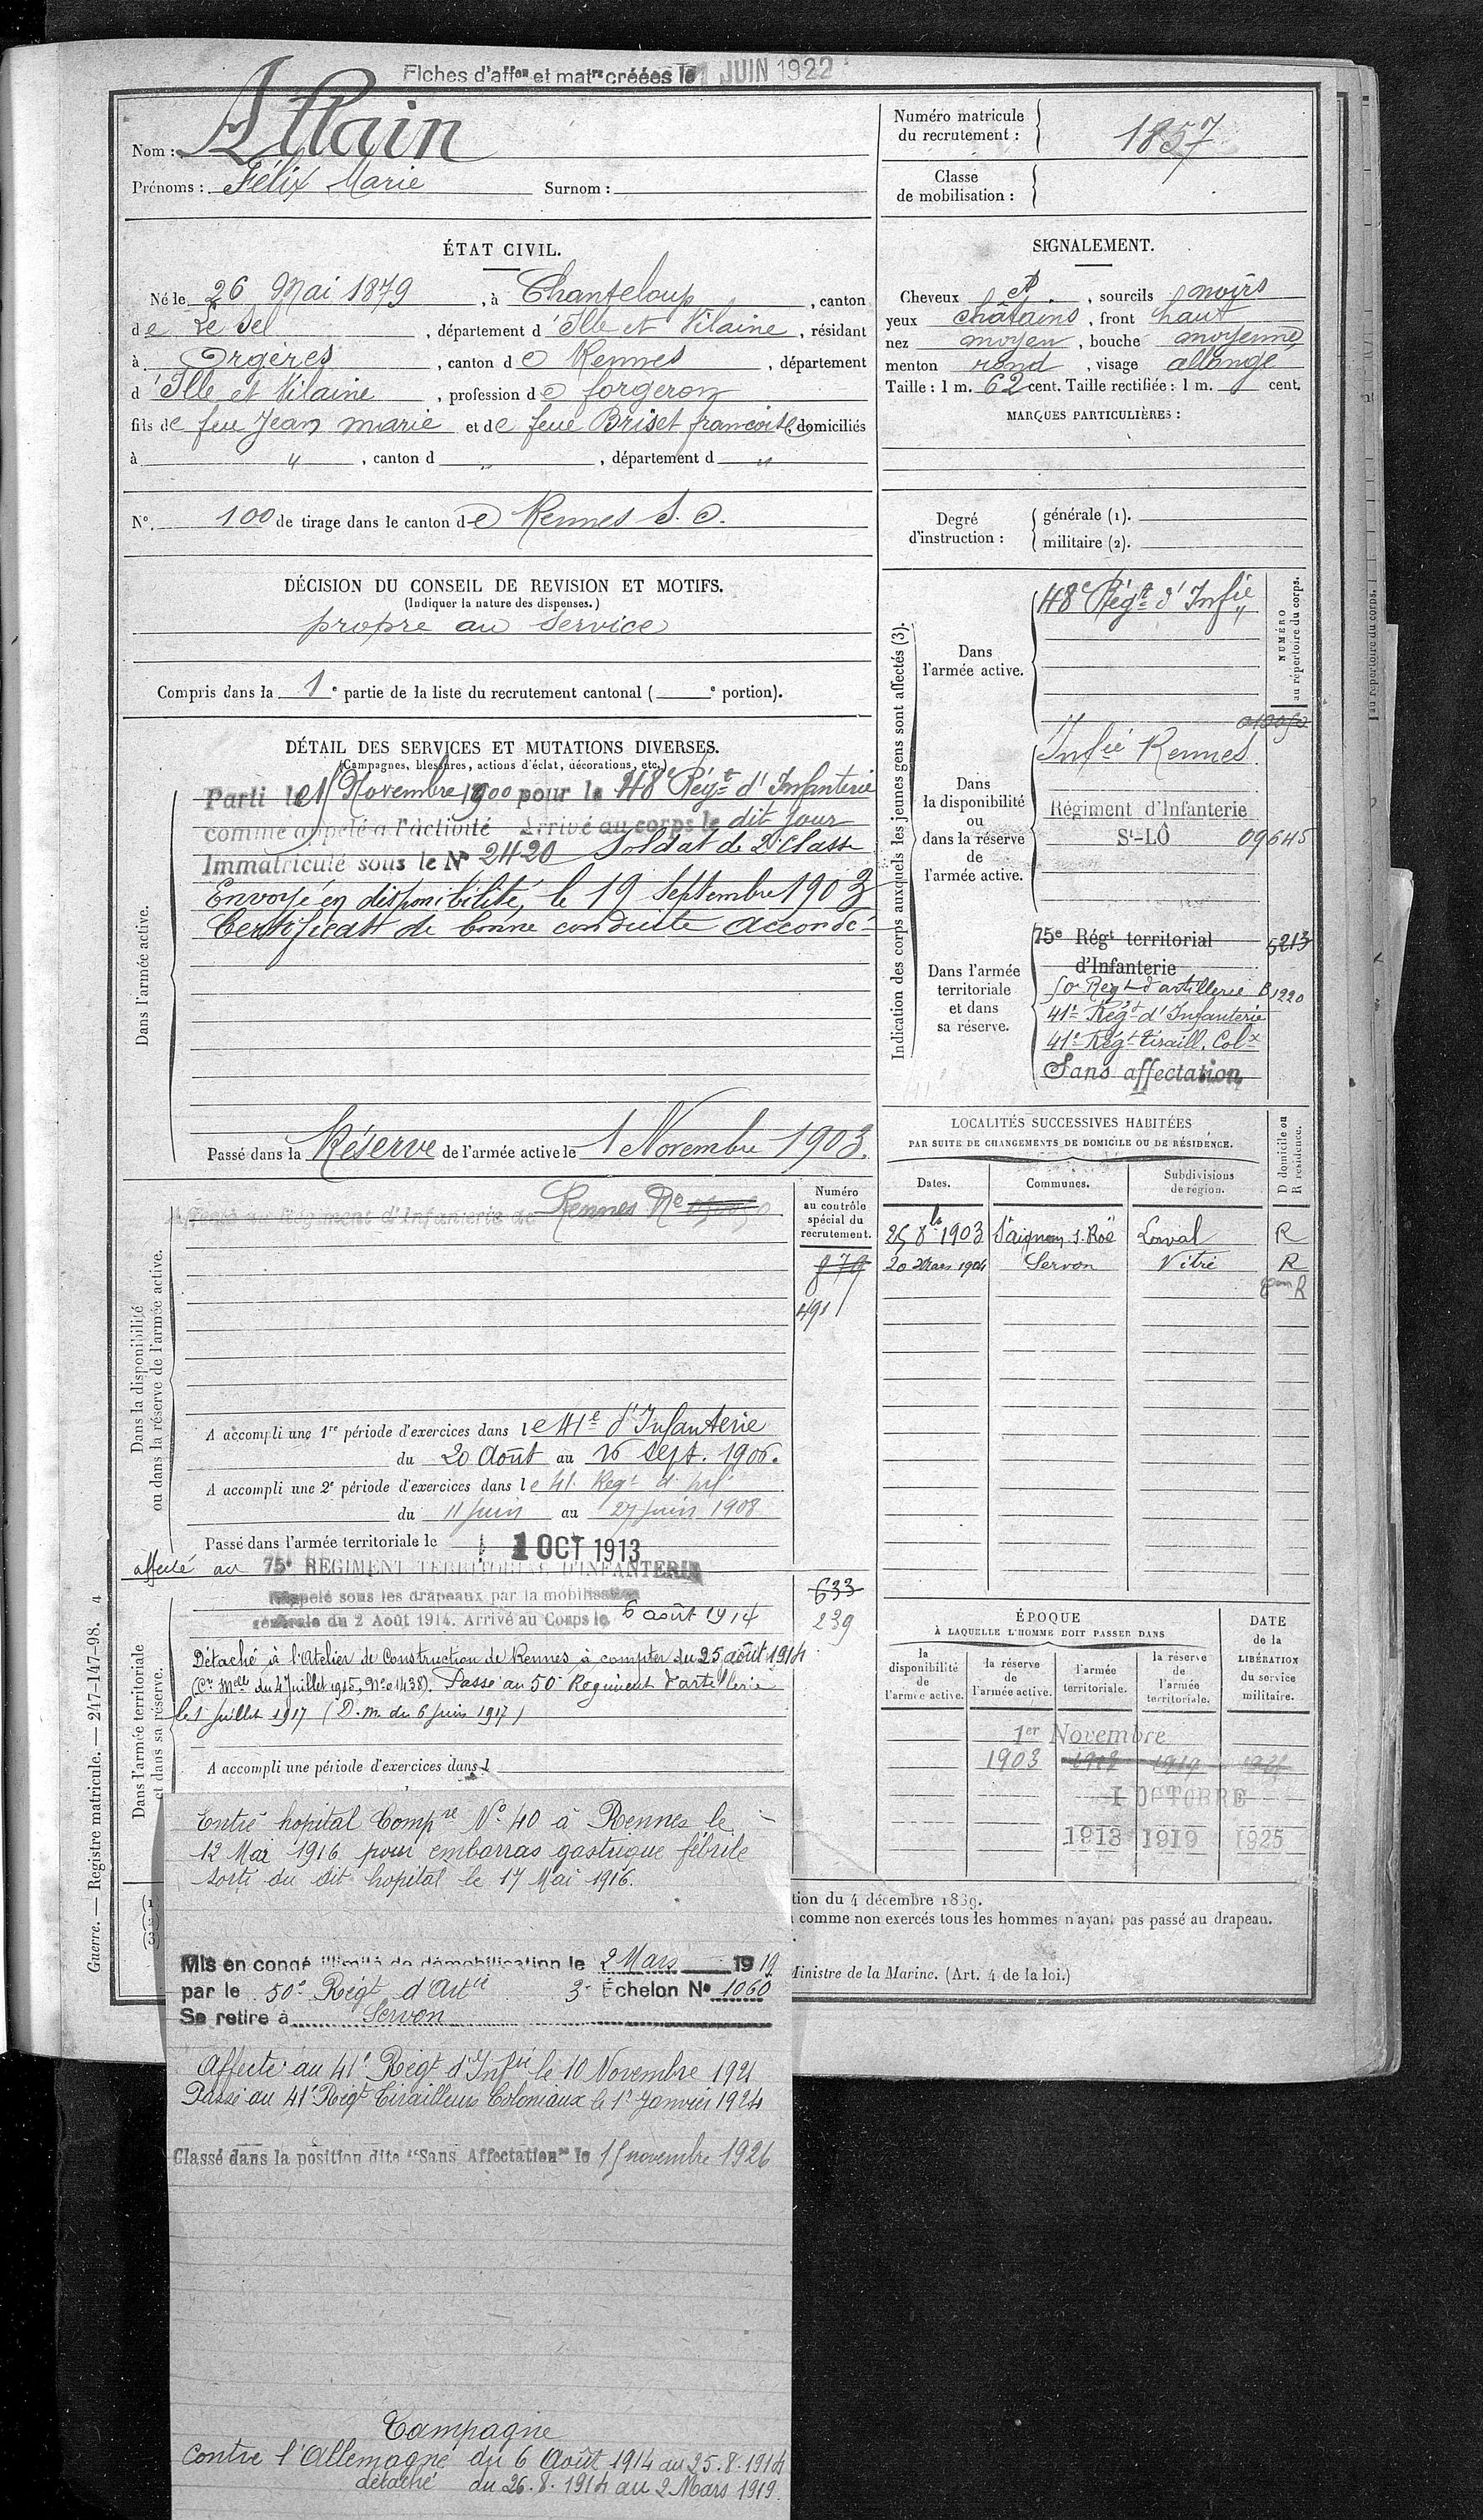 Fiches d'affon et matre créées le 1 JUIN 1922
Nom : Allain
Prénoms : Félix Marie Surnom :
Numéro matricule
du recrutement : 1857
Classe
de mobilisation :
ÉTAT CIVIL.
Né le 26 Mai 1879, à Chanteloup, canton
de Le Sel, département d'Ille et Vilaine, résidant
à Orgères, canton de Rennes, département
d'Ille et Vilaine, profession de forgeron
fils de feu Jean marie et de feue Briset francoise, domiciliés
à " , canton d " , département d "
No. 100 de tirage dans le canton de Rennes S. O.
SIGNALEMENT.
Cheveux ct. , sourcils noirs
yeux châtains, front haut
nez moyen, bouche moyenne
menton rond, visage allongé
Taille : 1 m. 62 cent. Taille rectifiée : 1 m. cent.
MARQUES PARTICULIÈRES :
Degré
d'instruction :
générale (1).
militaire (2).
DÉCISION DU CONSEIL DE REVISION ET MOTIFS.
(Indiquer la nature des dispenses.)
propre au service
Compris dans la 1e partie de la liste du recrutement cantonal ( e portion).
DÉTAIL DES SERVICES ET MUTATIONS DIVERSES.
(Campagnes, blessures, actions d'éclat, décorations, etc.)
Dans l'armée active.
Parti le 15 Novembre 1900 pour le 48e Régt d'Infanterie
comme appelé à l'activité Arrivé au corps le dit jour
Immatriculé sous le No 2420 Soldat de 2e classe
Envoyé en disponibilité, le 19 Septembre 1903
Certificat de bonne conduite accordé
Passé dans la Réserve de l'armée active le 1 Novembre 1903.
Indication des corps auxquels les jeunes gens sont affectés (3).
NUMÉRO
au répertoire du corps.
Dans
l'armée active.
48e Régt d'Infie
Dans
la disponibilité
ou
dans la réserve
de
l'armée active.
Infie Rennes
Régiment d'Infanterie
St-LÔ 09645
Dans l'armée
territoriale
et dans
sa réserve.
75e Régt territorial 5213
d'Infanterie
50e Régt d'artillerie B1220
41e Régt d'Infanterie
41e Régt tiraill. Colx
Sans affectation
LOCALITÉS SUCCESSIVES HABITÉES
PAR SUITE DE CHANGEMENTS DE DOMICILE OU DE RÉSIDENCE.
D domicile ou
R résidence.
Dates. Communes. Subdivisions
de région.
25 8bre 1903 St aignan s. Roë Laval R
20 Mars 1904 Servon Vitré R
R
Dans la disponibilité
ou dans la réserve de l'armée active.
Affecté au Régiment d'Infanterie de Rennes No
Numéro
au contrôle
spécial du
recrutement.
879
491
A accompli une 1re période d'exercices dans le 41e d'Infanterie
du 20 Août au 16 sept. 1906.
A accompli une 2e période d'exercices dans le 41 Regt d'inf
du 11 juin au 27 juin 1908
Passé dans l'armée territoriale le 1 OCT 1913
affecté au 75e RÉGIMENT TERRITORIAL D'INFANTERIE
Dans l'armée territoriale
et dans sa réserve.
633
239
Rappelé sous les drapeaux par la mobilisation
générale du 2 Août 1914. Arrivé au Corps le 6 août 1914
Détaché à l'Atelier de Construction de Rennes à compter du 25 août 1914
(Cr Melle du 4 Juillet 1915, No 01438). Passé au 50e Régiment d'artillerie
le 1 juillet 1917 (D. m. du 6 juin 1917)
A accompli une période d'exercices dans l
ÉPOQUE
À LAQUELLE L'HOMME DOIT PASSER DANS
DATE
de la
LIBÉRATION
du service
militaire.
la
disponibilité
de
l'armée active.
la réserve
de
l'armée active.
l'armée
territoriale.
la réserve
de
l'armée
territoriale.
1er Novembre
1903
1 OCTOBRE
1913 1919 1925
Entré hopital Compre No 40 à Rennes le
12 Mai 1916 pour embarras gastrique fébrile
sorti du dit hopital le 17 Mai 1916.
tion du 4 décembre 1889.
comme non exercés tous les hommes n'ayant pas passé au drapeau.
Ministre de la Marine. (Art. 4 de la loi.)
Mis en congé illimité de démobilisation le 2 Mars 1919
par le 50e Régt d'Artie 3e Échelon No 1060
Se retire à Servon
Affecté au 41e Régt d'Infie le 10 Novembre 1921
Passé au 41e Régt Tirailleurs Coloniaux le 1er Janvier 1924
Classé dans la position dite "Sans Affectation" le 15 novembre 1926
Campagne
Contre l'Allemagne du 6 Août 1914 au 25.8.1914
détaché du 26.8.1914 au 2 Mars 1919.
Guerre. — Registre matricule. — 247-147-98. 4
au répertoire du corps.